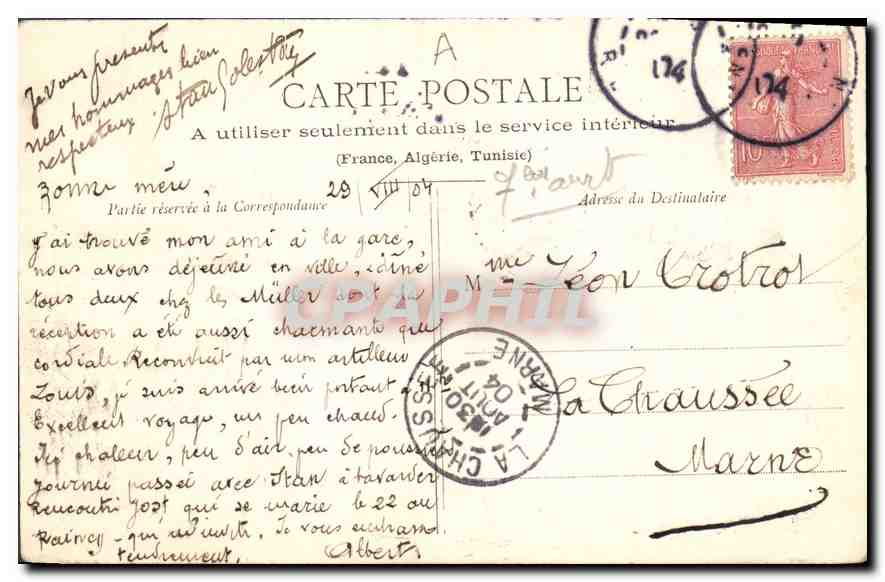 Je vous présente
mes hommages bien
respectueux
A
CARTE POSTALE
A utiliser seulement dans le service intérieur
(France, Algérie, Tunisie)
29 VIII 04
Partie réservée à la Correspondance
Adresse du Destinataire
mère,
J'ai trouvé mon ami à la gare,
nous avons déjeuné en ville, dîné
tous deux chez les Müller dont la
réception a été aussi charmante que
cordiale. Reconduit par mon artilleur
Louis, je suis arrivé bien portant à
Excellent voyage, un peu chaud.
Ici chaleur, peu d'air, peu de poussière
journée passée avec Stan à bavarder
rencontré Jost qui se marie le 22 au
Raincy - qui m'invite. Je vous embrasse
tendrement.
Albert
Mme Léon Trotrot
La Chaussée
Marne
LA CHAUSSEE
MARNE
30
AOUT
04
10
CPAPHIL